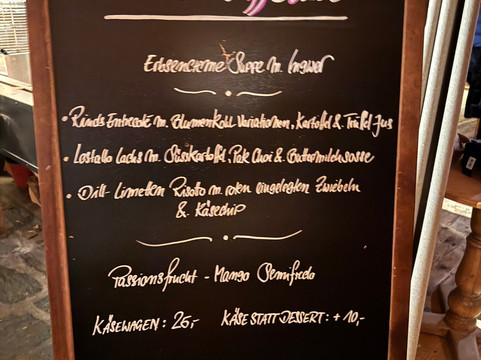 Erbsencreme Suppe m. Ingwer
• Rinds Entrecote m. Blumenkohl Variationen, Kartoffel & Trüffel Jus
• Lostallo Lachs m. Süsskartoffel, Pak Choi & Buttermilchsosse
• Dill-Limetten Risotto m. roten eingelegten Zwiebeln
& Käsechip
Passionsfrucht - Mango Semifredo
KÄSEWAGEN: 25,- KÄSE STATT DESSERT: + 10,-